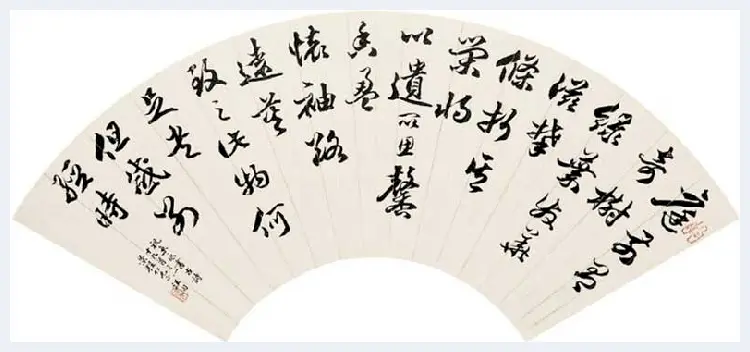 庭前有
奇樹
綠葉發華
滋攀
條折其
榮將
以遺所思馨
香盈
懷袖路
遠莫
致之此物何
足貴
但感別
經時